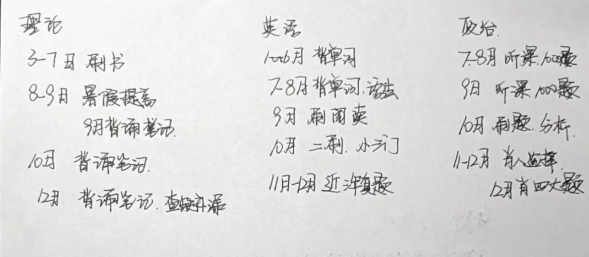 理论
3-7月 刷书
8-9月 暑假提高
9月背诵笔记
10月 背诵笔记
12月 背诵笔记、查缺补漏
英语
6月 背单词
7-8月背单词、语法
9月 刷阅读
10月 二刷、小三门
11月-12月 近年真题
政治
7-8月 听课、1000题
9月 听课、1000题
10月 刷题、分析
11-12月 肖八选择
12月肖四大题